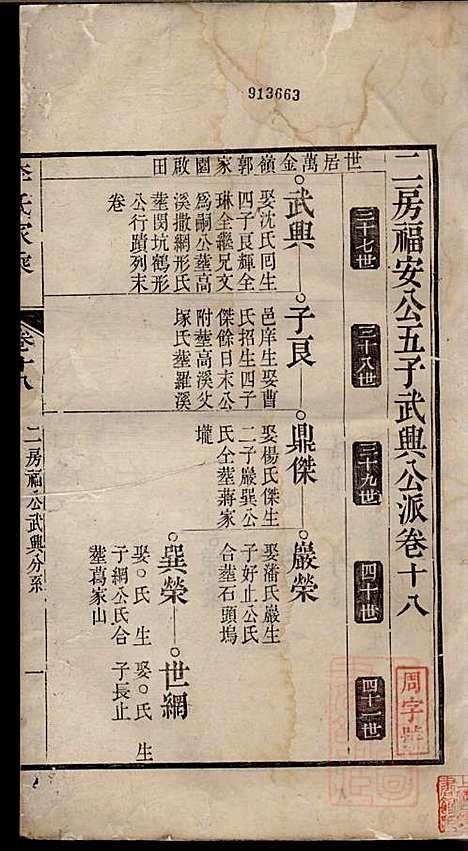 913663
二房福安公五子武興公派卷十八
三十七世
三十八世
三十九世
四十世
四十一世
周字號
世居萬金嶺郭家園啟田
武興
娶沈氏囘生
四子良輝全
琳全繼兄文
爲嗣公塟高
溪撒網形氏
塟閔坑鶴形
公行蹟列末
卷
子良
邑庠生娶曹
氏招生四子
傑餘日末公
附塟高溪父
塚氏塟羅溪
鼎傑
娶楊氏傑生
二子巖巽公
氏仝塟蔣家
壠
巖榮
娶潘氏巖生
子好止公氏
合塟石頭塢
巽榮
娶○氏生
子網公氏合
塟葛家山
世網
娶○氏生
子長止
李氏家乘
卷十八
二房福公武興分系
一